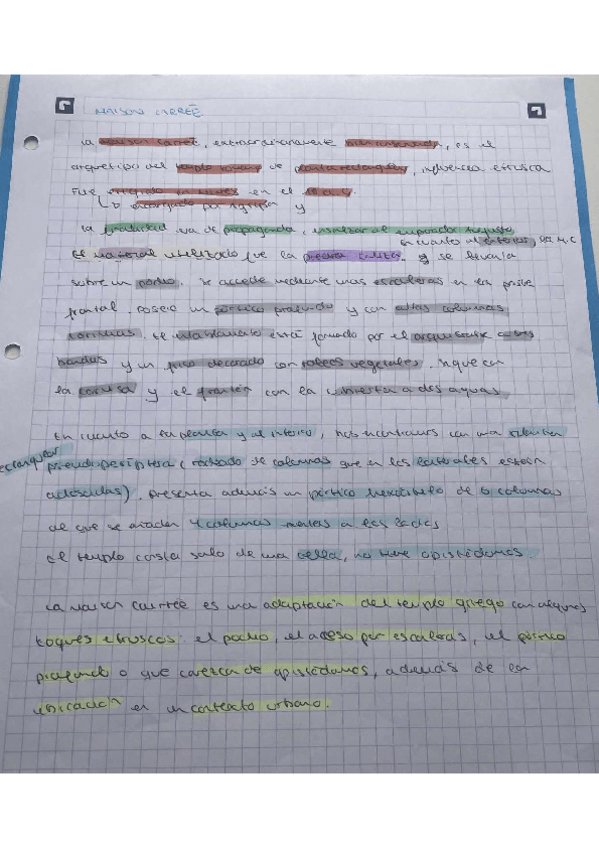 MAISON CARRÉE
La Maison Carrée, extraordinariamente bien conservada, es el
arquetipo del templo romano de planta rectangular, influencia etrusca
Fue erigido en Nimes en el s. I a. C.
encargado por Agripa y
La finalidad era de propaganda, ensalzar al emperador Augusto,
En cuanto al exterior,
El material utilizado fue la piedra caliza. y se levanta
sobre un podio, se accede mediante unas escaleras en la parte
frontal. Posee un pórtico profundo y con altas columnas
corintias. El entablamento está formado por el arquitrabe con
bandas y un friso decorado con roleos vegetales.
la cornisa y el frontón con la cubierta a dos aguas.
En cuanto a su planta y al interior, nos encontramos con una planta
rectangular
pseudoperíptera (rodeado de columnas que en los laterales están
adosadas). Presenta además un pórtico hexástilo de 6 columnas
al que se añaden 4 columnas más a los lados
el templo consta solo de una cella, no tiene opistodomos.
La Maison Carrée es una adaptación del templo griego con algunos
toques etruscos: el podio, el acceso por escaleras, el pórtico
profundo o que carezca de opistodomos, además de la
ubicación en un contexto urbano.